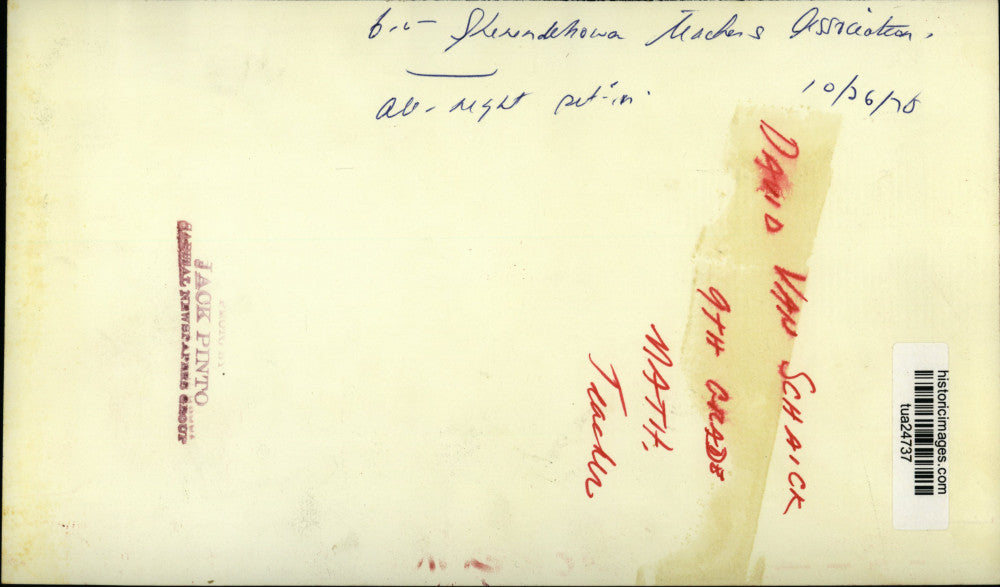 Shenendehowa Teachers Association.
All-night sit-in.
10/26/75
DAVID VAN SCHAICK
9TH GRADE
MATH.
Teacher
JACK PINTO
NEWSPAPERS GROUP
historicimages.com
tua24737